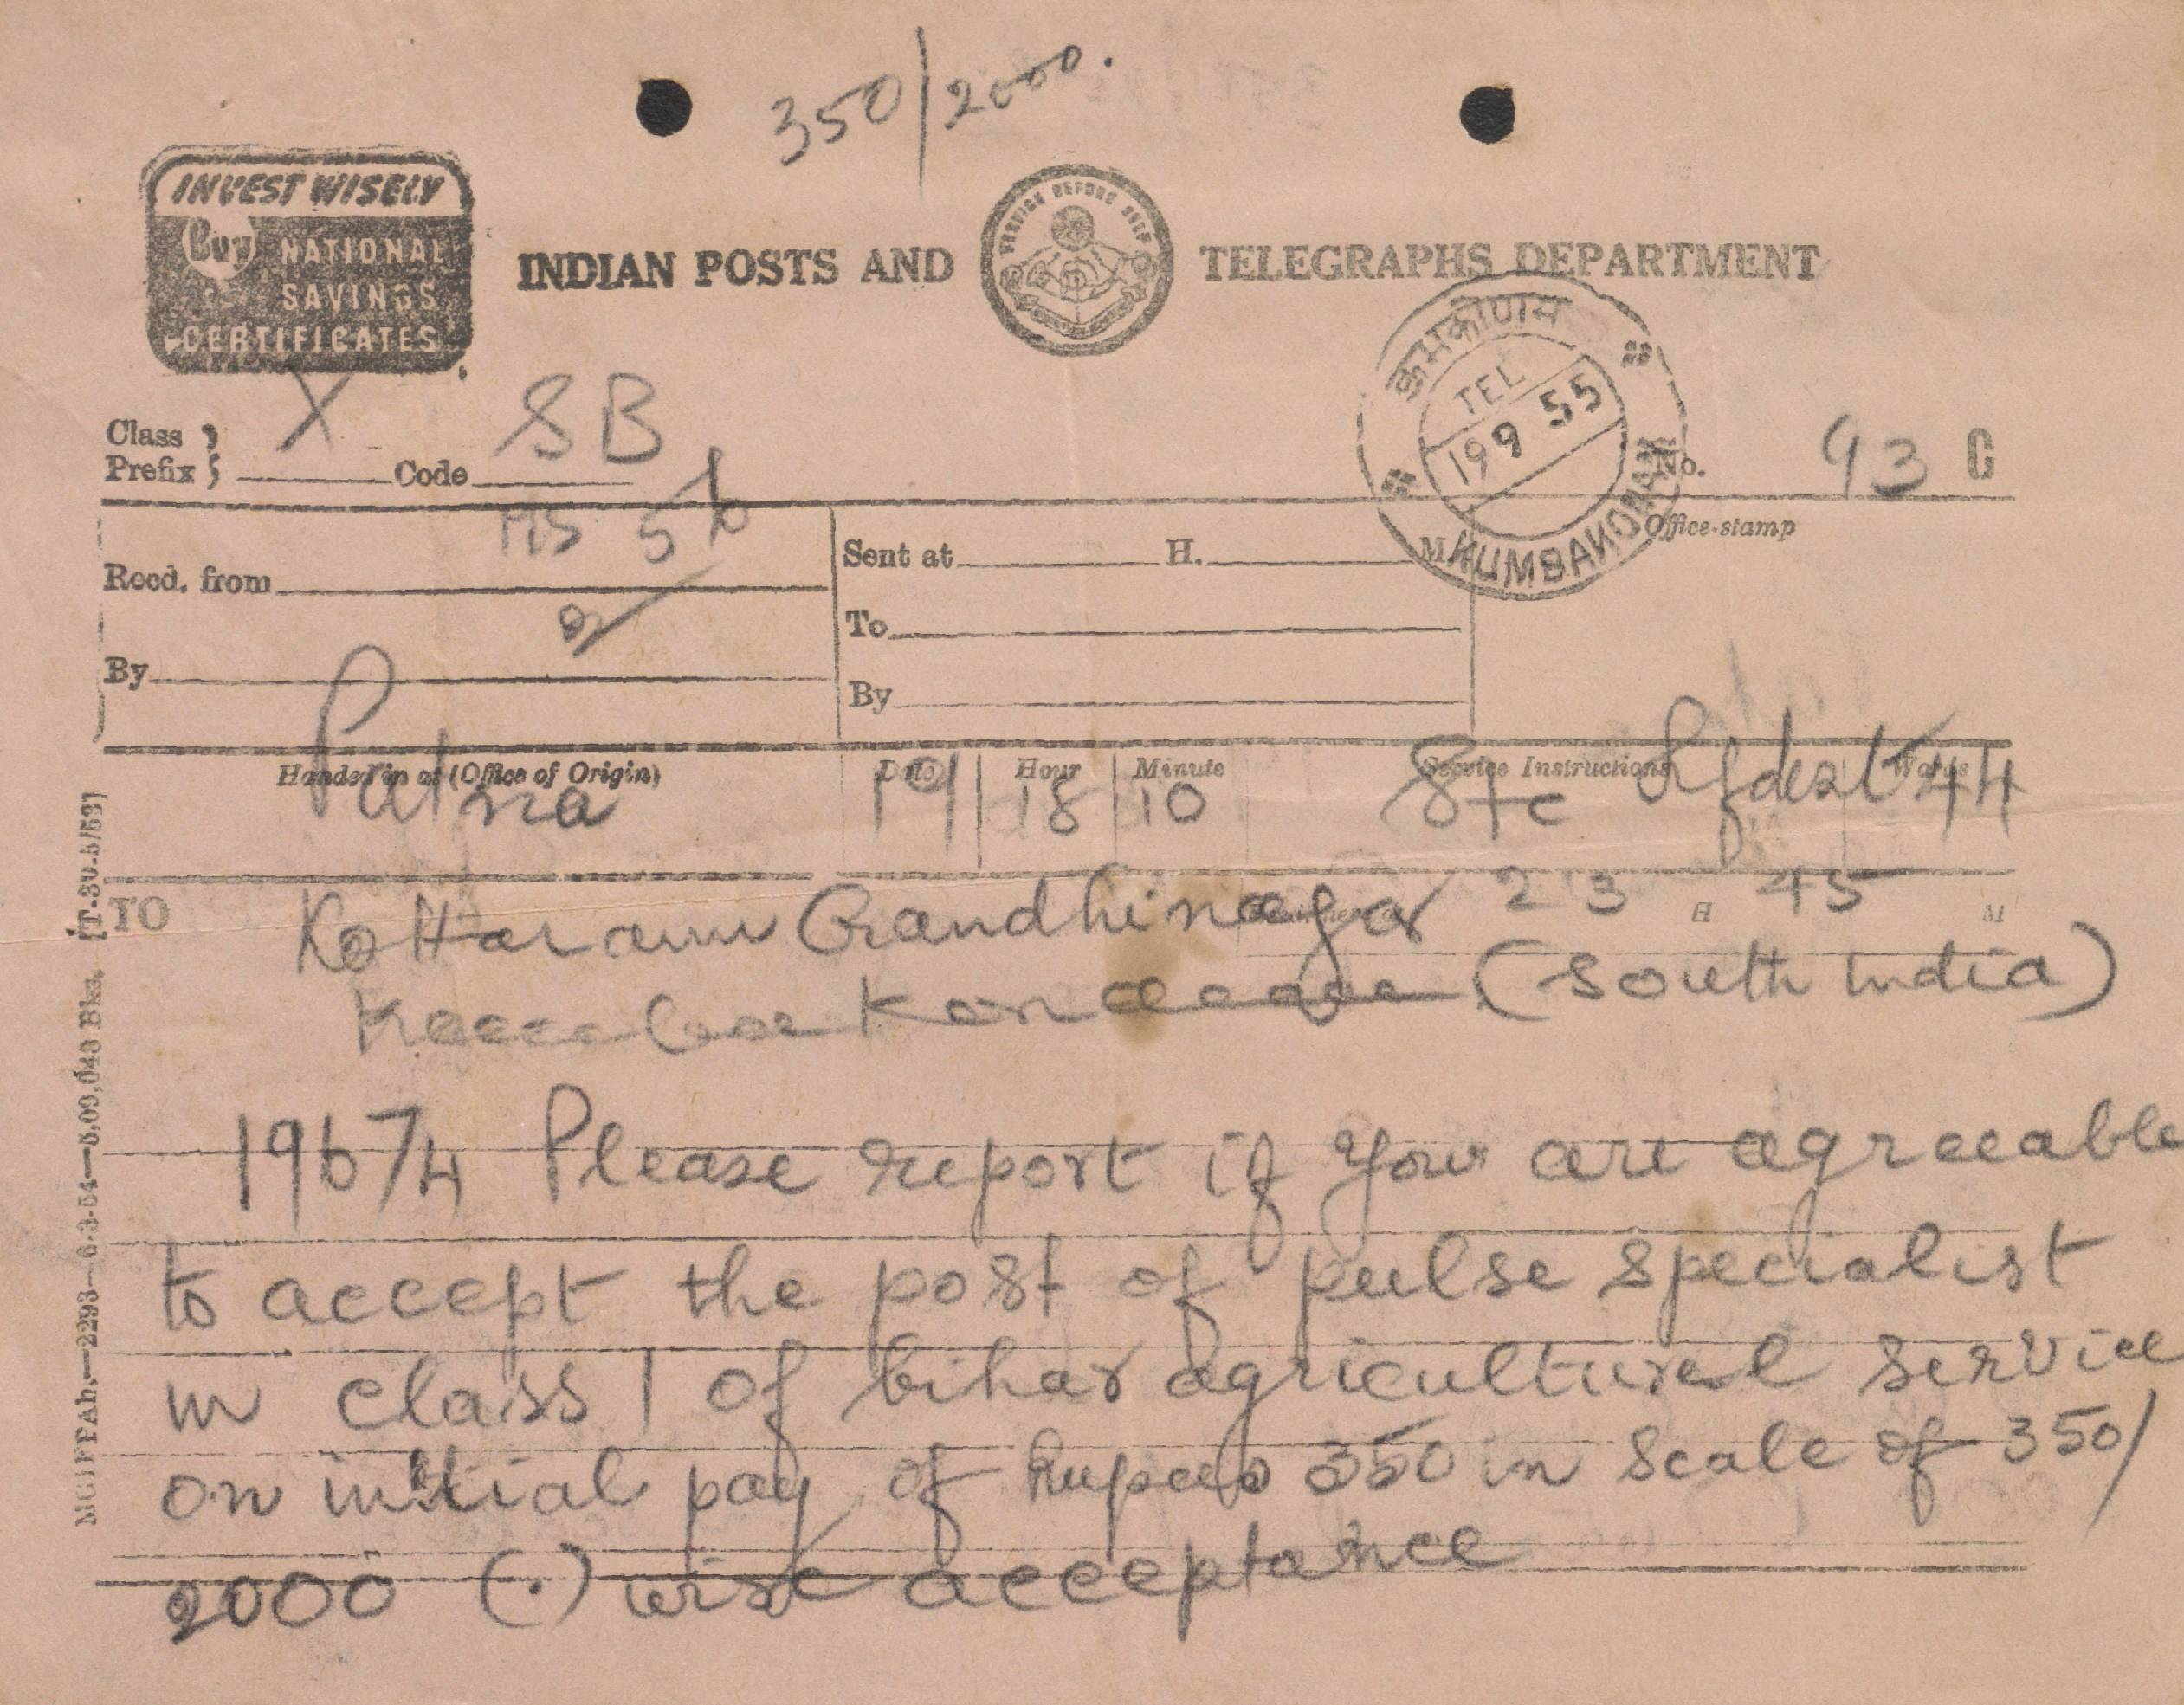 350/2000.
INVEST WISELY
Buy NATIONAL
SAVINGS
CERTIFICATES
INDIAN POSTS AND TELEGRAPHS DEPARTMENT
SERVICE BEFORE SELF
TEL
19 9 55
KUMBAKONAM
Class
Prefix X Code SB
No. 93 C
Office-stamp
Recd. from
Sent at H. M
To
By
By
Handed in at (Office of Origin) Date Hour Minute Service Instructions Words
Patna 19 18 10 44
TO Kottaram Gandhinagar 23 H 45 M
(South India)
19674 Please report if you are agreeable
to accept the post of pulse specialist
in class I of bihar agricultural service
on initial pay of Rupees 350 in scale of 350/
2000 (.) wire acceptance
MGIPPAh.—2293—6-3-54—5,00,043 Bks. [T-30-5/53]